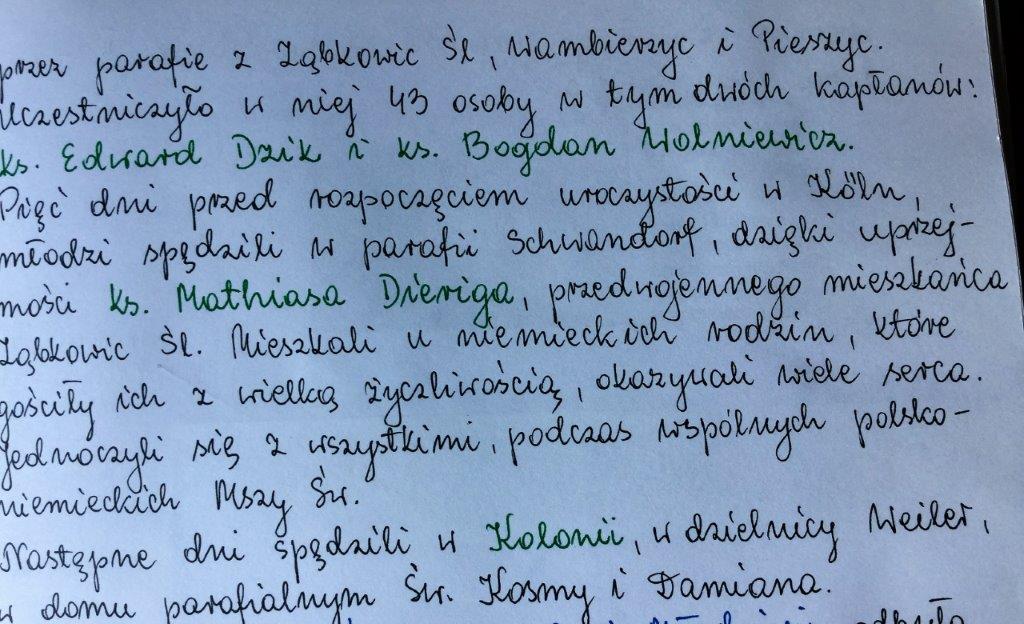 przez parafie z Ząbkowic Śl, Wambierzyc i Pieszyc.
Uczestniczyło w niej 43 osoby w tym dwóch kapłanów:
ks. Edward Dzik i ks. Bogdan Wolniewicz.
Pięć dni przed rozpoczęciem uroczystości w Köln,
młodzi spędzili w parafii Schwandorf, dzięki uprzej-
mości ks. Mathiasa Dieriga, przedwojennego mieszkańca
Ząbkowic Śl. Mieszkali u niemieckich rodzin, które
gościły ich z wielką życzliwością, okazywali wiele serca.
Jednoczyli się z wszystkimi, podczas wspólnych polsko-
niemieckich Mszy Św.
Następne dni spędzili w Kolonii, w dzielnicy Weiler,
w domu parafialnym Św. Kosmy i Damiana.